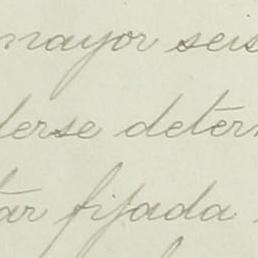 mayor seis
derse deter
tar fijada